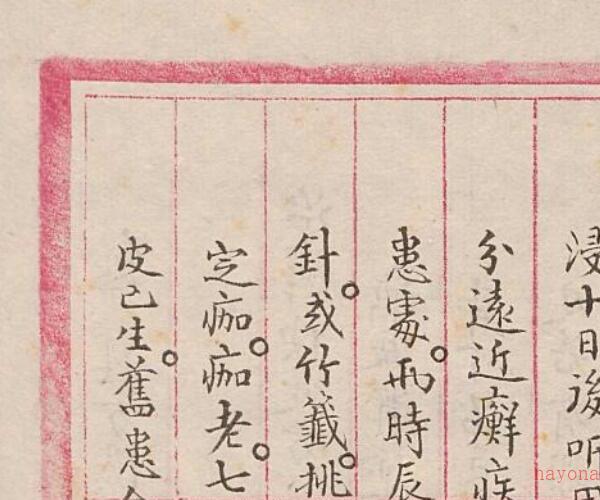 浸十日後听用
分遠近癬疾
患處。兩時辰
針。或竹籤。挑
定痂。痂老。七
皮已生。舊患
nayona